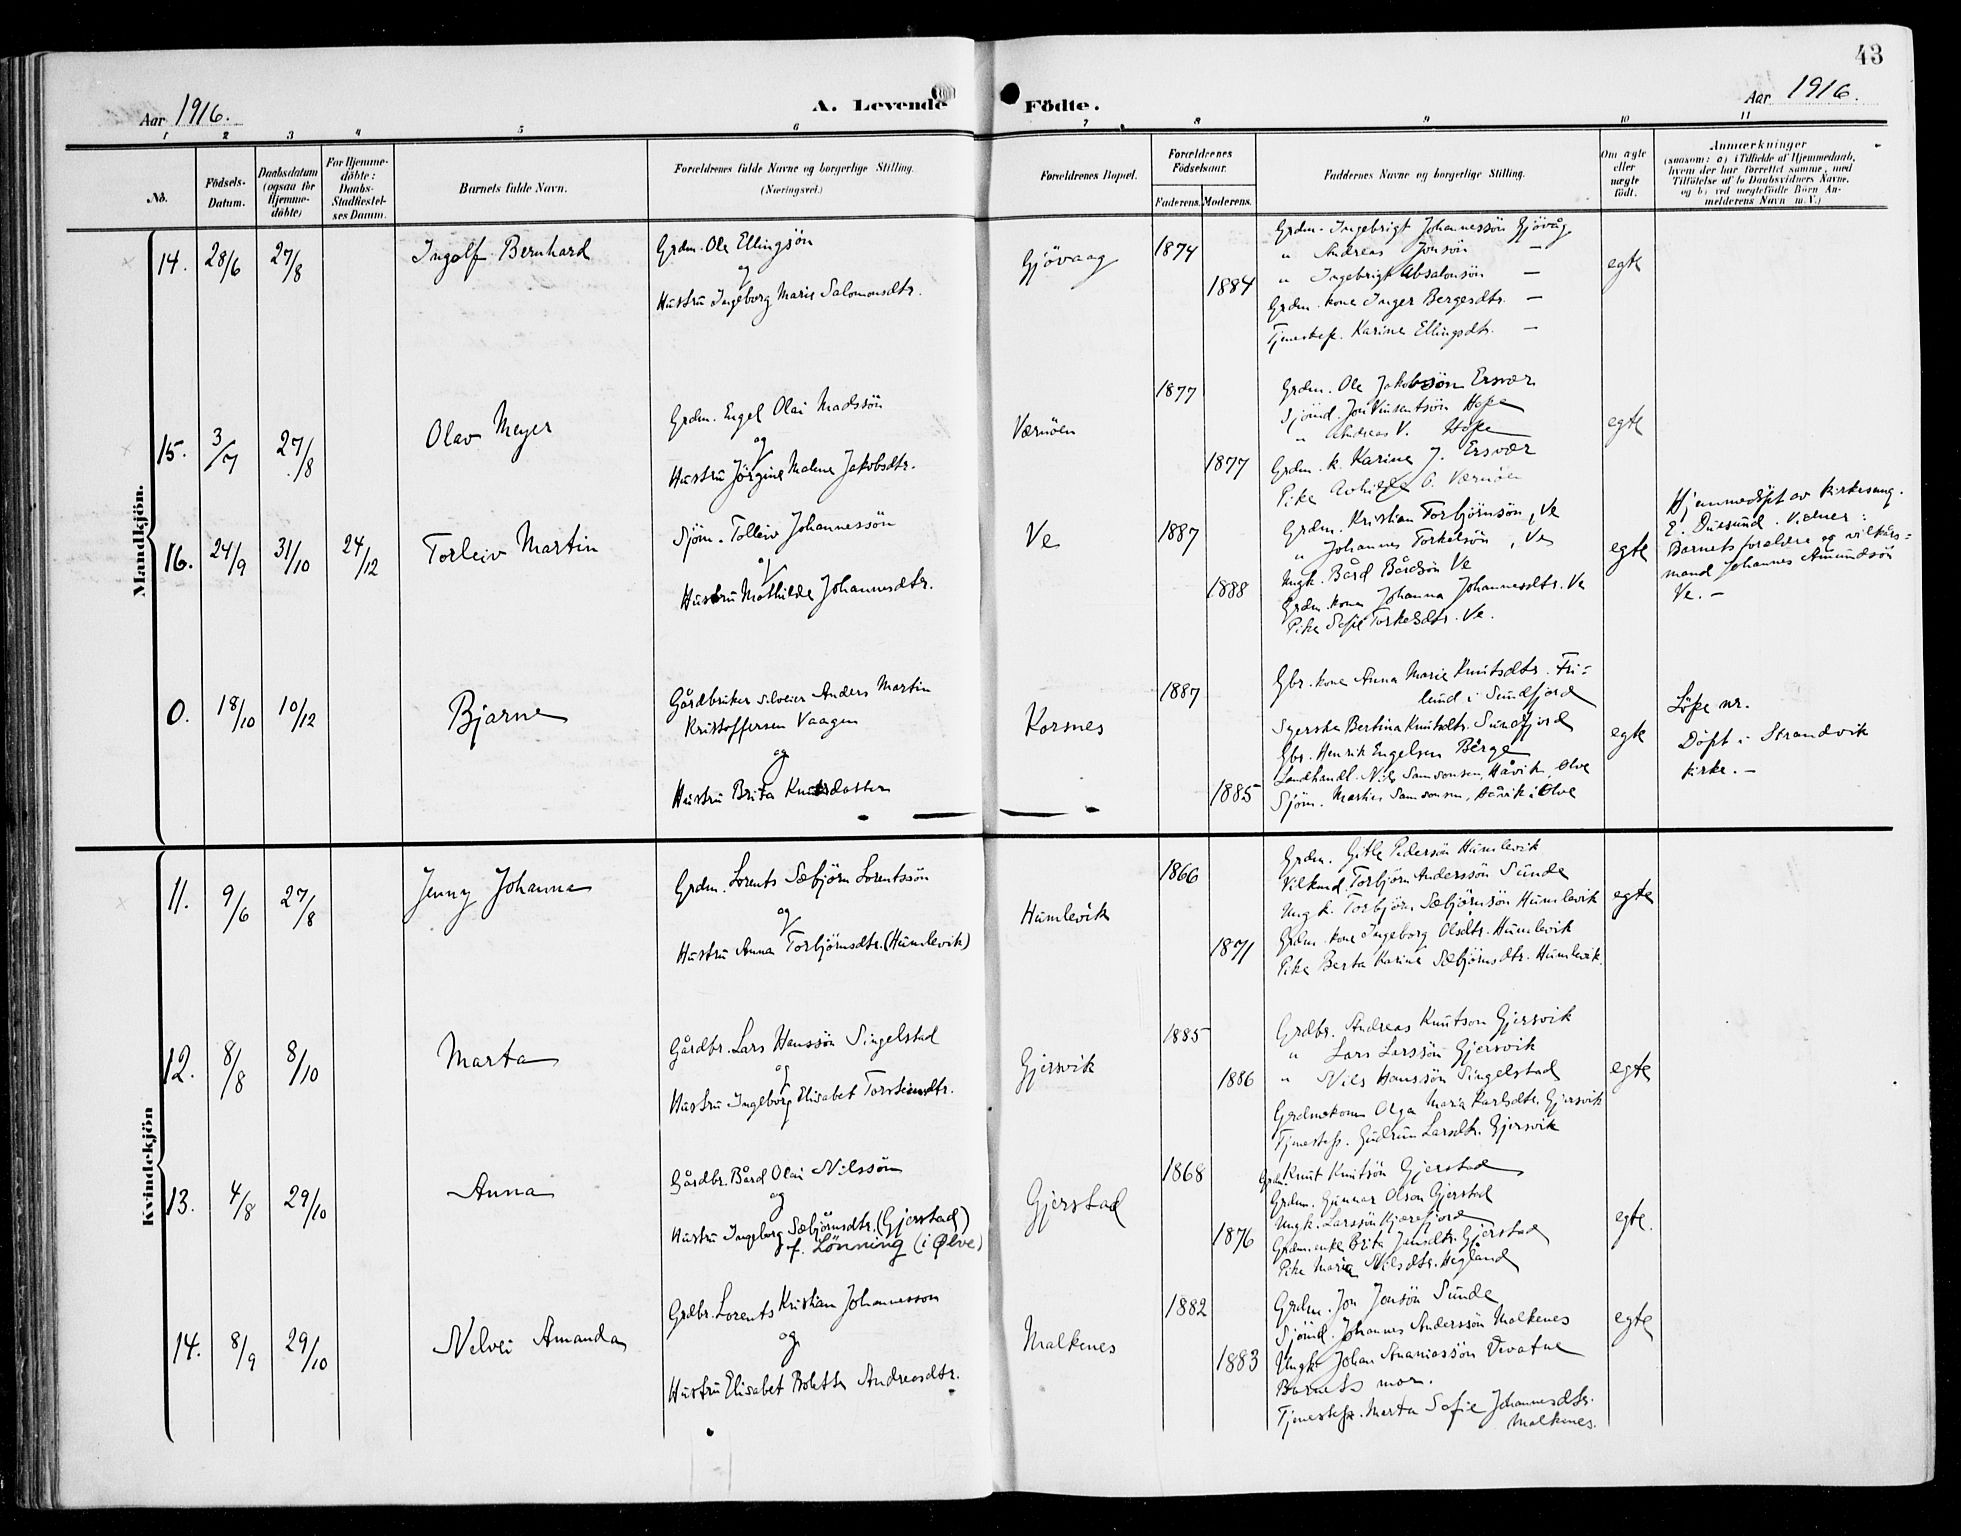 43
Aar 1916.
A. Levende Födte.
Aar 1916.
1 2 3 4 5 6 7 8 9 10 11
No.
Födsels-Datum.
Daabsdatum (ogsaa for Hjemme-döbte)
For Hjemme-döbte: Daabs-Stadfæstel-ses Datum.
Barnets fulde Navn.
Forældrenes fulde Navne og borgerlige Stilling. (Næringsvei.)
Forældrenes Bopæl.
Forældrenes Födselsaar.
Faderens. Moderens.
Faddernes Navne og borgerlige Stilling.
Om ægte eller uægte födt.
Anmærkninger
(saasom: a) i Tilfælde af Hjemmedaab,
hvem der har forrettet samme, med
Tilföielse af to Daabsvidners Navne,
og b) ved uægtefödte Börn An-
melderens Navn m. V.)
Mandkjön.
14. 28/6 27/8 Ingolf Bernhard
Grdm. Ole Ellingsön
og
Hustru Ingeborg Marie Salomonsdtr.
Gjövaag
1874
1884
Grdm. Ingebrigt Johannessön Gjövåg
" Andreas Jonsön —
" Ingebrigt Absalonsön —
Grdm. kone Inger Bergesdtr. —
Tjenestep. Karina Ellingsdtr. —
egte
15. 3/7 27/8 Olav Meyer
Grdm. Engel Olai Madssön
og
Hustru Jörgine Malene Jakobsdtr.
Værnöen
1877
1877
Grdm. Ole Jakobssön Ersvær
Sjömd. Jon Vinsentsön Hope
" Andreas V. Hope
Grdm. k. Karine J. Ersvær
Pike O. Værnöen
egte
16. 24/9 31/10 24/12 Torleiv Martin
Sjöm. Tolleiv Johannessön
og
Hustru Mathilde Johannesdtr.
Ve
1887
1888
Grdm. Kristian Torbjörnsön, Ve
" Johannes Torkelsön, Ve
Ungk. Bård Bårdsön Ve
Grdm. kone Johanna Johannesdtr. Ve
Pike Sofie Torkelsdtr. Ve.
egte
Hjemmedöpt av kirkesang.
E. Duesund. Vidner:
Barnets forældre og vilkårs-
mand Johannes Amundsön
Ve. —
0. 18/10 10/12 Bjarne
Gårdbruker Anders Martin
Kristoffersen Vaagen
og
Hustru Brita Knutsdatter
Korsnes
1887
1885
Gbr. kone Anna Marie Knutsdtr. Fri-
lund i Sundfjord
Syerske Bertina Knutsdtr. Sundfjord
Gbr. Henrik Engelsen Berge
Landhandl. Nils Samsonsen, Håvik, Ølve
Sjöm. Martin Samsonsen, Håvik i Ølve
egte
Löpe nr.
Döpt i Strandvik
kirke. —
Kvindekjön
11. 9/6 27/8 Jenny Johanna
Grdm. Lorents Sæbjörn Lorentssön
og
Hustru Anna Torbjörnsdtr. (Humlevik)
Humlevik
1866
1871
Grdm. Gitle Pedersön Humlevik
Vilkmd. Torbjörn Anderssön Sunde
Ungk. Torbjörn Sæbjörnsön Humlevik
Grdm. kone Ingeborg Olsdtr. Humlevik
Pike Berta Karine Sæbjörnsdtr. Humlevik.
egte
12. 8/8 8/10 Marta
Gårdbr. Lars Hanssön Singelstad
og
Hustru Ingeborg Elisabet Torsteinsdtr.
Gjersvik
1885
1886
Grdbr. Andreas Knutson Gjersvik
" Lars Larssön Gjersvik
" Nils Hanssön Singelstad
Grdmskone Olga Maria Karlsdtr. Gjersvik
Tjenestep. Gudrun Larsdtr. Gjersvik
egte
13. 4/8 29/10 Anna
Gårdbr. Bård Olai Nilssön
og
Hustru Ingeborg Sæbjörnsdtr. (Gjerstad)
f. Lönning (i Ølve)
Gjerstad
1868
1876
Grdm. Knut Knutsön Gjerstad
Grdm. Gunnar Olson Gjerstad
Ungk. Larssön Kjærefjord
Grdm. enke Brita Jonsdtr. Gjerstad
Pike Maria Nilsdtr. Hegland
egte.
14. 8/9 29/10 Nelvei Amanda
Grdbr. Lorents Kristian Johannesson
og
Hustru Elisabet Bolette Andreasdtr.
Malkenes
1882
1883
Grdm. Jon Jonsön Sunde
Sjömd. Johannes Anderssön Malkenes
Ungk. Johan Ananiassön Vevatne
Barnets mor.
Tjenestep. Marta Sofie Johannesdtr.
Malkenes.
egte